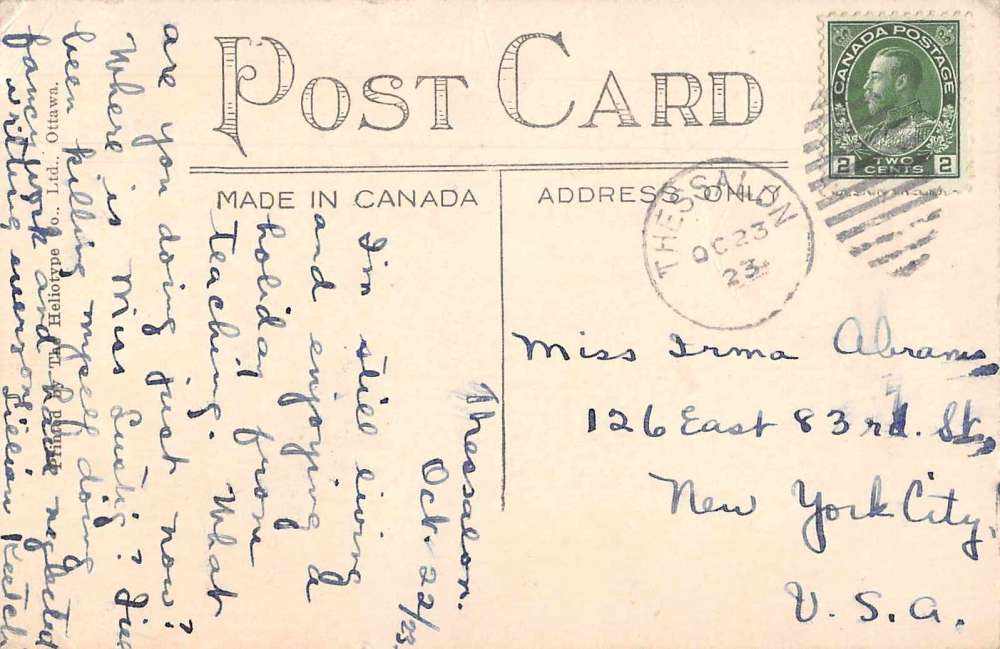 POST CARD
MADE IN CANADA
ADDRESS ONLY
CANADA POSTAGE
2 TWO CENTS 2
THESSALON
OC 23
23
Miss Irma Abrams
126 East 83rd. St.,
New York City,
U. S. A.
Thessalon.
Oct. 22/23.
I'm still living
and enjoying a
holiday from
teaching. What
are you doing just now?
Where is Miss Lustig? I've
been killing myself doing
fancy work and have neglected
writing everyone.
Lillian Keetch
Printed by The Heliotype Co., Ltd., Ottawa.